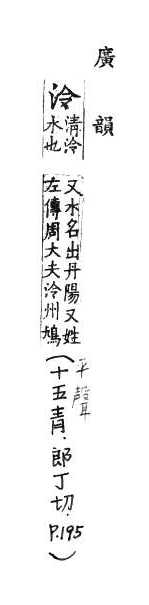 廣韻
泠
清泠
水也
又水名出丹陽又姓
左傳周大夫泠州鳩
(十五青.郎丁切.P.195)
平聲